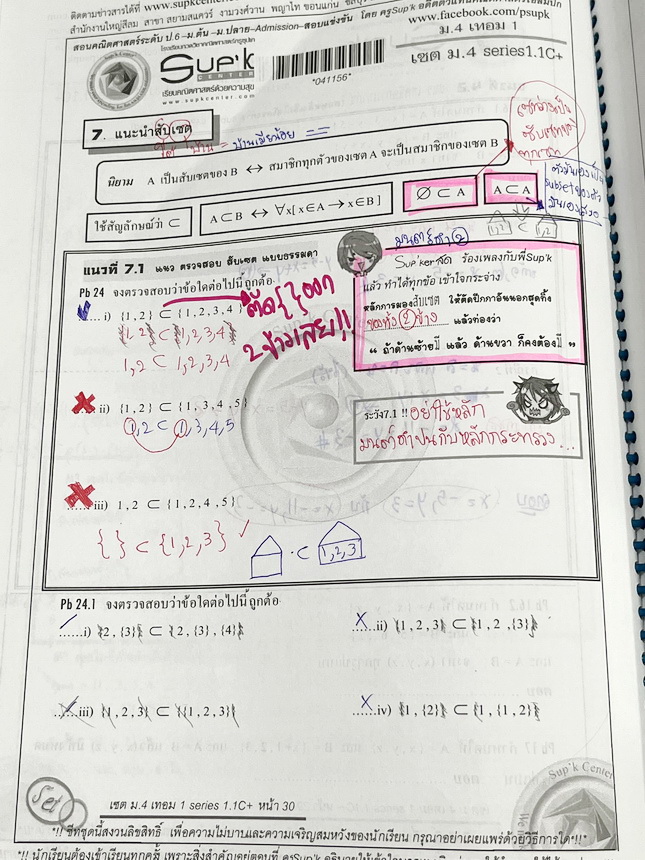 ติดตามข่าวสารได้ที่ www.supkcenter
สำนักงานใหญ่สีลม สาขา สยามสแควร์ งามวงศ์วาน พญาไท ขอนแก่น
สอนคณิตศาสตร์ระดับ ป.6-ม.ต้น-ม.ปลาย-Admission-สอบแข่งขัน โดย ครูSup'k
www.facebook.com/psupk
ม.4 เทอม 1
เซต ม.4 series1.1C+
โรงเรียนกวดวิชาคณิตศาสตร์ครูซุปเค
Sup'k
CENTER
เรียนคณิตศาสตร์ด้วยความสุข
www.supkcenter.com
*041156*
7. แนะนำสับเซต
ใต้ บ้าน = บ้านเมียน้อย
นิยาม A เป็นสับเซตของ B ↔ สมาชิกทุกตัวของเซต A จะเป็นสมาชิกของเซต B
ใช้สัญลักษณ์ว่า ⊂
A ⊂ B ↔ ∀x[ x∈A → x∈B ]
∅ ⊂ A
A ⊂ A
เซตว่างเป็น
ตัวมันเองเป็น
subsetของตัว
มันเองเสมอ
1,2 ⊂ 1,2
แนวที่ 7.1 แนว ตรวจสอบ สับเซต แบบธรรมดา
Pb 24 จงตรวจสอบว่าข้อใดต่อไปนี้ ถูกต้อง
i) {1, 2} ⊂ {1, 2, 3, 4}
{1,2} ⊂ {1,2,3,4}
1,2 ⊂ 1,2,3,4
ตัด{ }ออก
2 ข้างเสีย!!
มนต์ดำ 2
Sup'kerสุด ร้องเพลงกับพี่Sup'k
แล้ว ทำได้ทุกข้อ เข้าใจกระจ่าง
หลักการมองสับเซต ให้ตัดปีกกาอันนอกสุดทิ้ง
ของทั้ง 2 ข้าง แล้วท่องว่า
“ ถ้าด้านซ้ายมี แล้ว ด้านขวา ก็คงต้องมี ”
ii) {1, 2} ⊂ {1, 3, 4, 5}
1,2 ⊂ 1,3,4,5
ระวัง7.1 !! อย่าใช้หลัก
มนต์ดำปนกับหลักกระทรวง...
iii) 1, 2 ⊂ {1, 2, 4, 5}
{ } ⊂ {1,2,3} ✓
⊂ 1,2,3
Pb 24.1 จงตรวจสอบว่าข้อใดต่อไปนี้ ถูกต้อง
i) {2, {3}} ⊂ {2, {3}, {4}}
ii) {1, 2, 3} ⊂ {1, 2, {3}}
iii) {1, 2, 3} ⊂ {{1, 2, 3}}
iv) {1, {2}} ⊂ {1, {1, 2}}
Set
Sup'k Center
เซต ม.4 เทอม 1 series 1.1C+ หน้า 30
*!! ชีทชุดนี้สงวนลิขสิทธิ์ เพื่อความไม่บาบและความเจริญสมหวังของนักเรียน กรุณาอย่าเผยแพร่ด้วยวิธีการใด!!*
*!! นักเรียนต้องเข้าเรียนทุกครั้ง